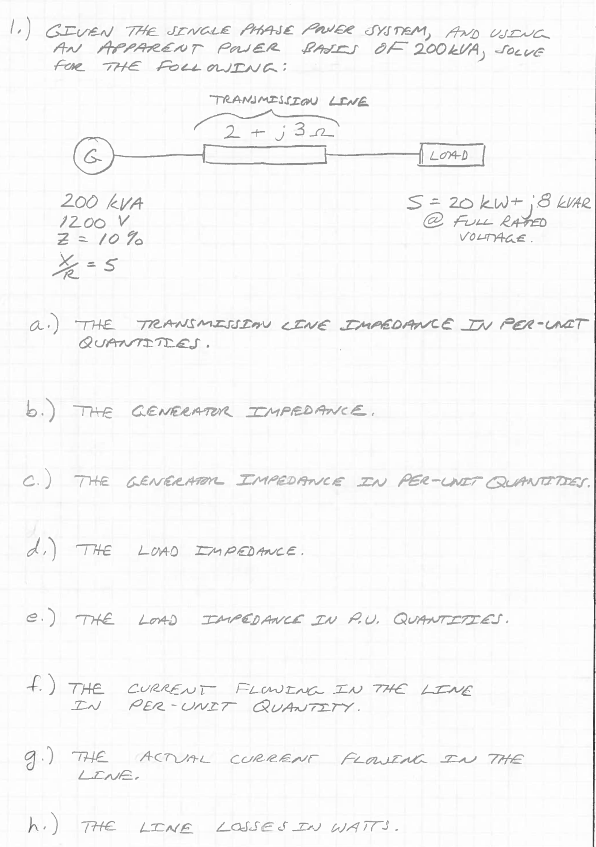 1.) GIVEN THE SINGLE PHASE POWER SYSTEM, AND USING
AN APPARENT POWER BASIS OF 200 kVA, SOLVE
FOR THE FOLLOWING:
TRANSMISSION LINE
2 + j 3 Ω
G
LOAD
200 kVA
1200 V
Z = 10 %
X/R = 5
S = 20 kW + j8 kVAR
@ FULL RATED
VOLTAGE.
a.) THE TRANSMISSION LINE IMPEDANCE IN PER-UNIT
QUANTITIES.
b.) THE GENERATOR IMPEDANCE.
c.) THE GENERATOR IMPEDANCE IN PER-UNIT QUANTITIES.
d.) THE LOAD IMPEDANCE.
e.) THE LOAD IMPEDANCE IN P.U. QUANTITIES.
f.) THE CURRENT FLOWING IN THE LINE
IN PER-UNIT QUANTITY.
g.) THE ACTUAL CURRENT FLOWING IN THE
LINE.
h.) THE LINE LOSSES IN WATTS.